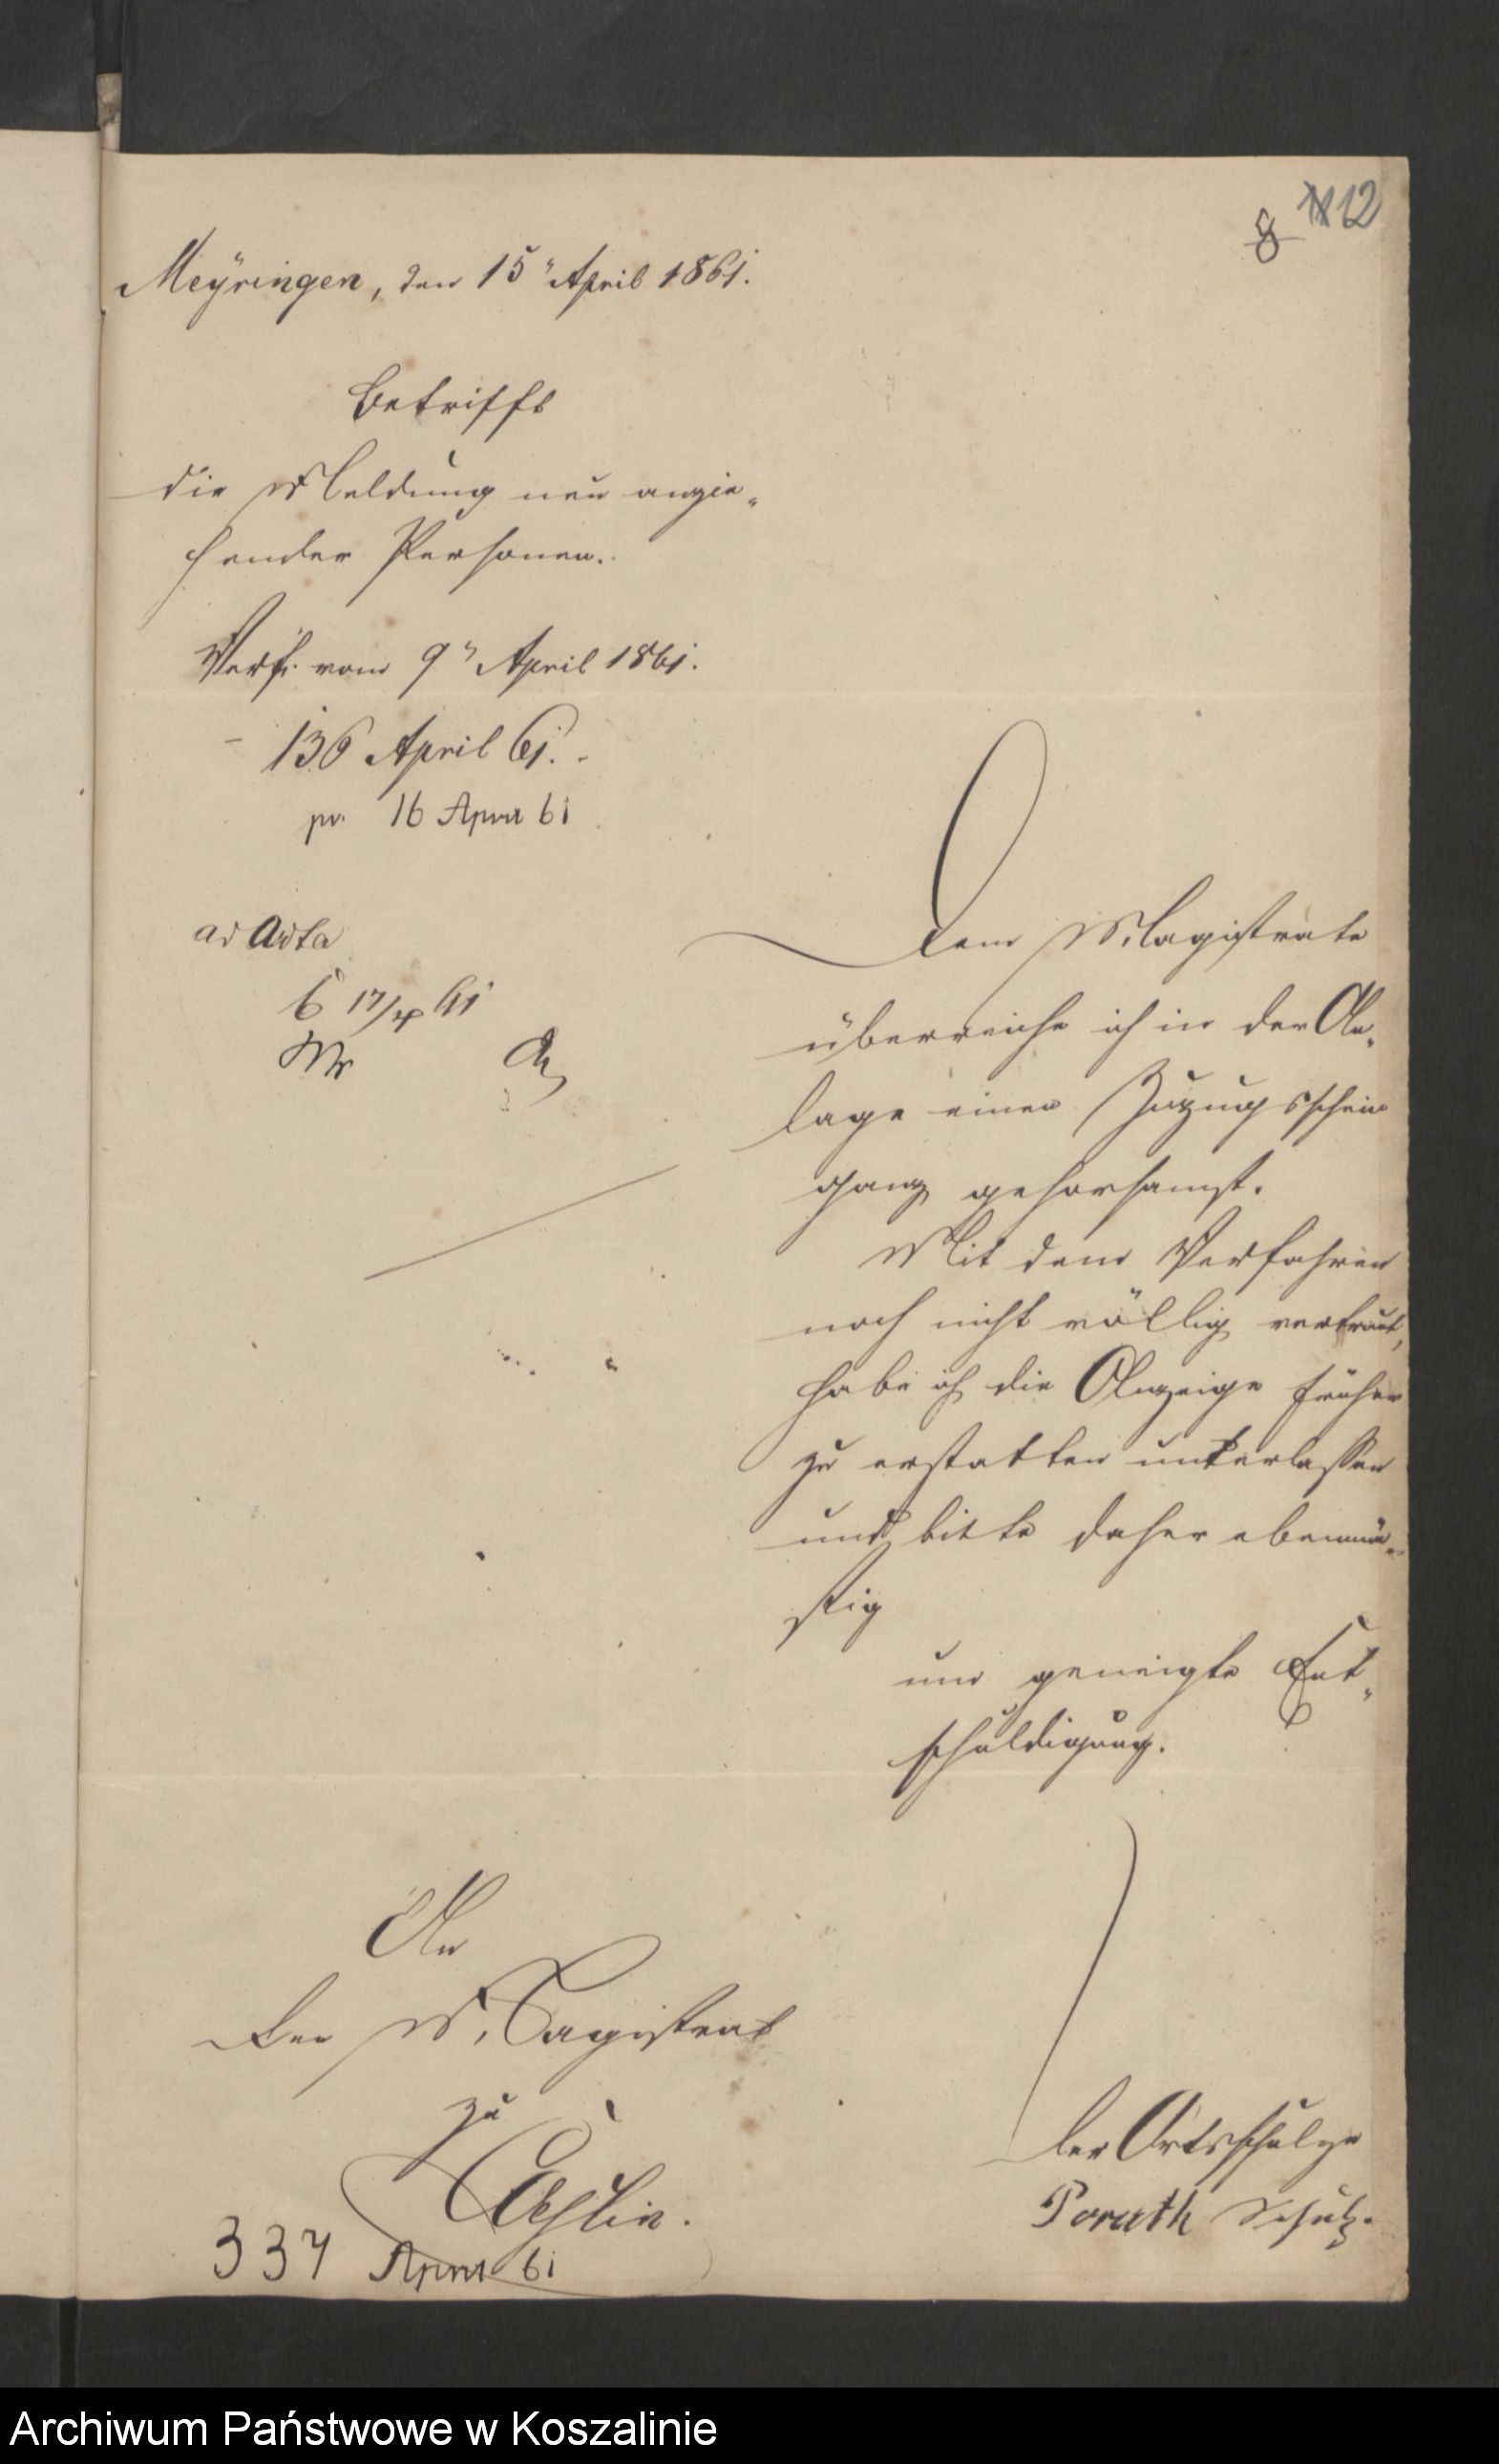 8 12
Meÿringen, den 15" April 1861.
Betrifft
die Meldung neu anzie„
hender Personen.
Verf. vom 9" April 1861.
- 136 April 61. -
pr. 16 April 61
ad Acta
C 17/4 61
Mr
Dem Magistrate
überreiche ich in der An„
lage einen Zuzugsschein
ganz gehorsamst.
Mit dem Verfahren
noch nicht völlig vertraut,
habe ich die Anzeige früher
zu erstatten unterlassen
und bitte daher ebenmä„
ßig
um geneigte Ent„
schuldigung.
An
den Magistrat
zu
Cöslin.
Der Ortsschulze
Poruth Schulz.
337 April 61
Archiwum Państwowe w Koszalinie